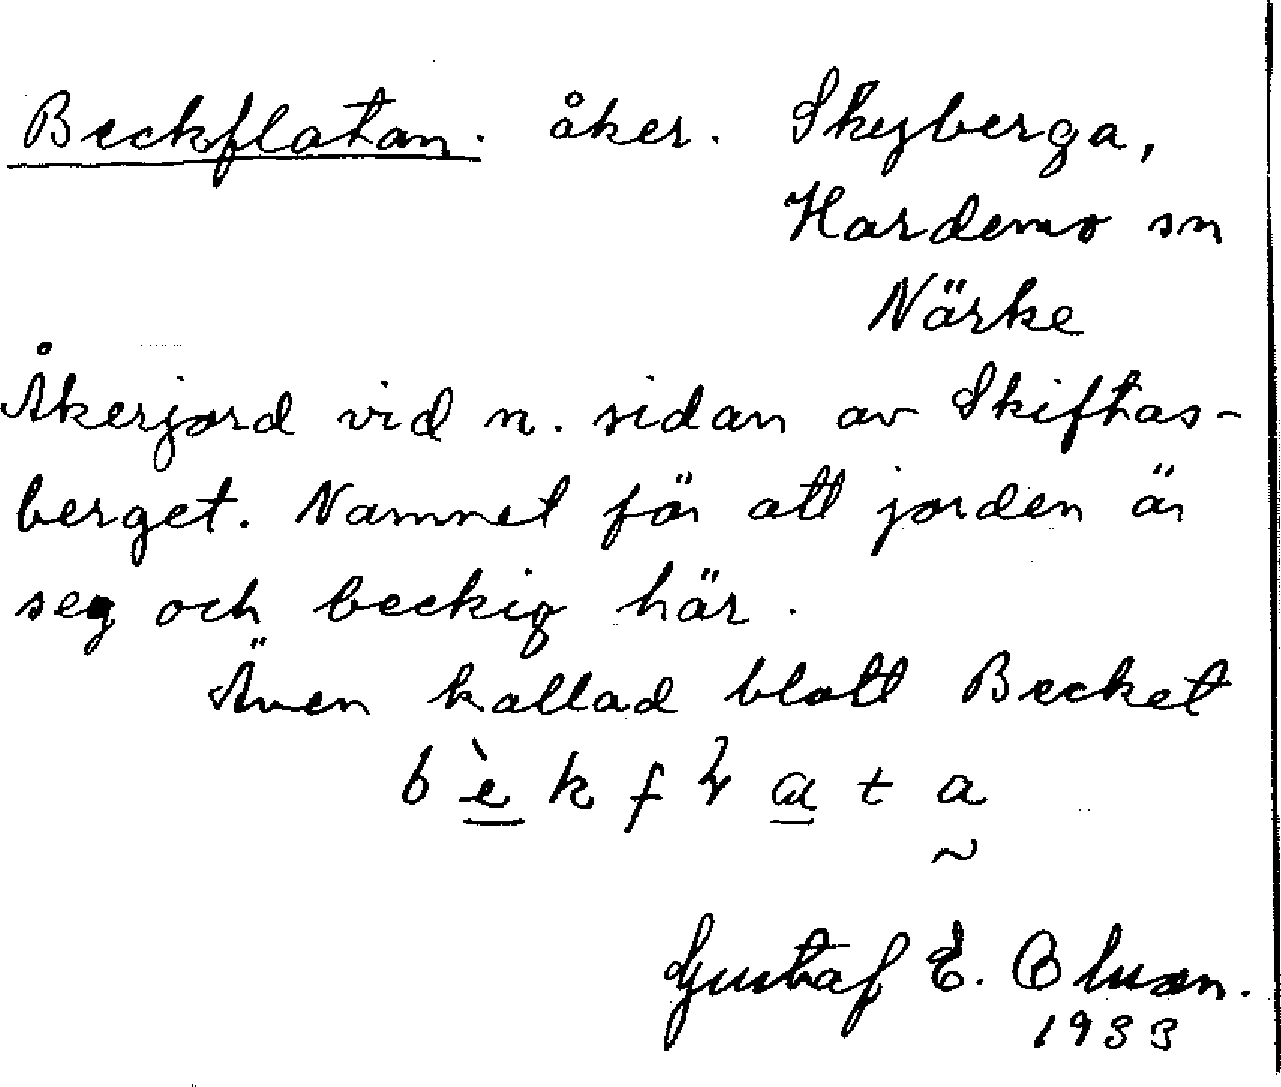 Beckflatan. åker. Skyberga,
Hardemo sn
Närke
Åkerjord vid n. sidan av Skiftas-
berget. Namnet för att jorden är
seg och beckig här.
Även kallad blott Becket
Gustaf E. Olsson.
1933